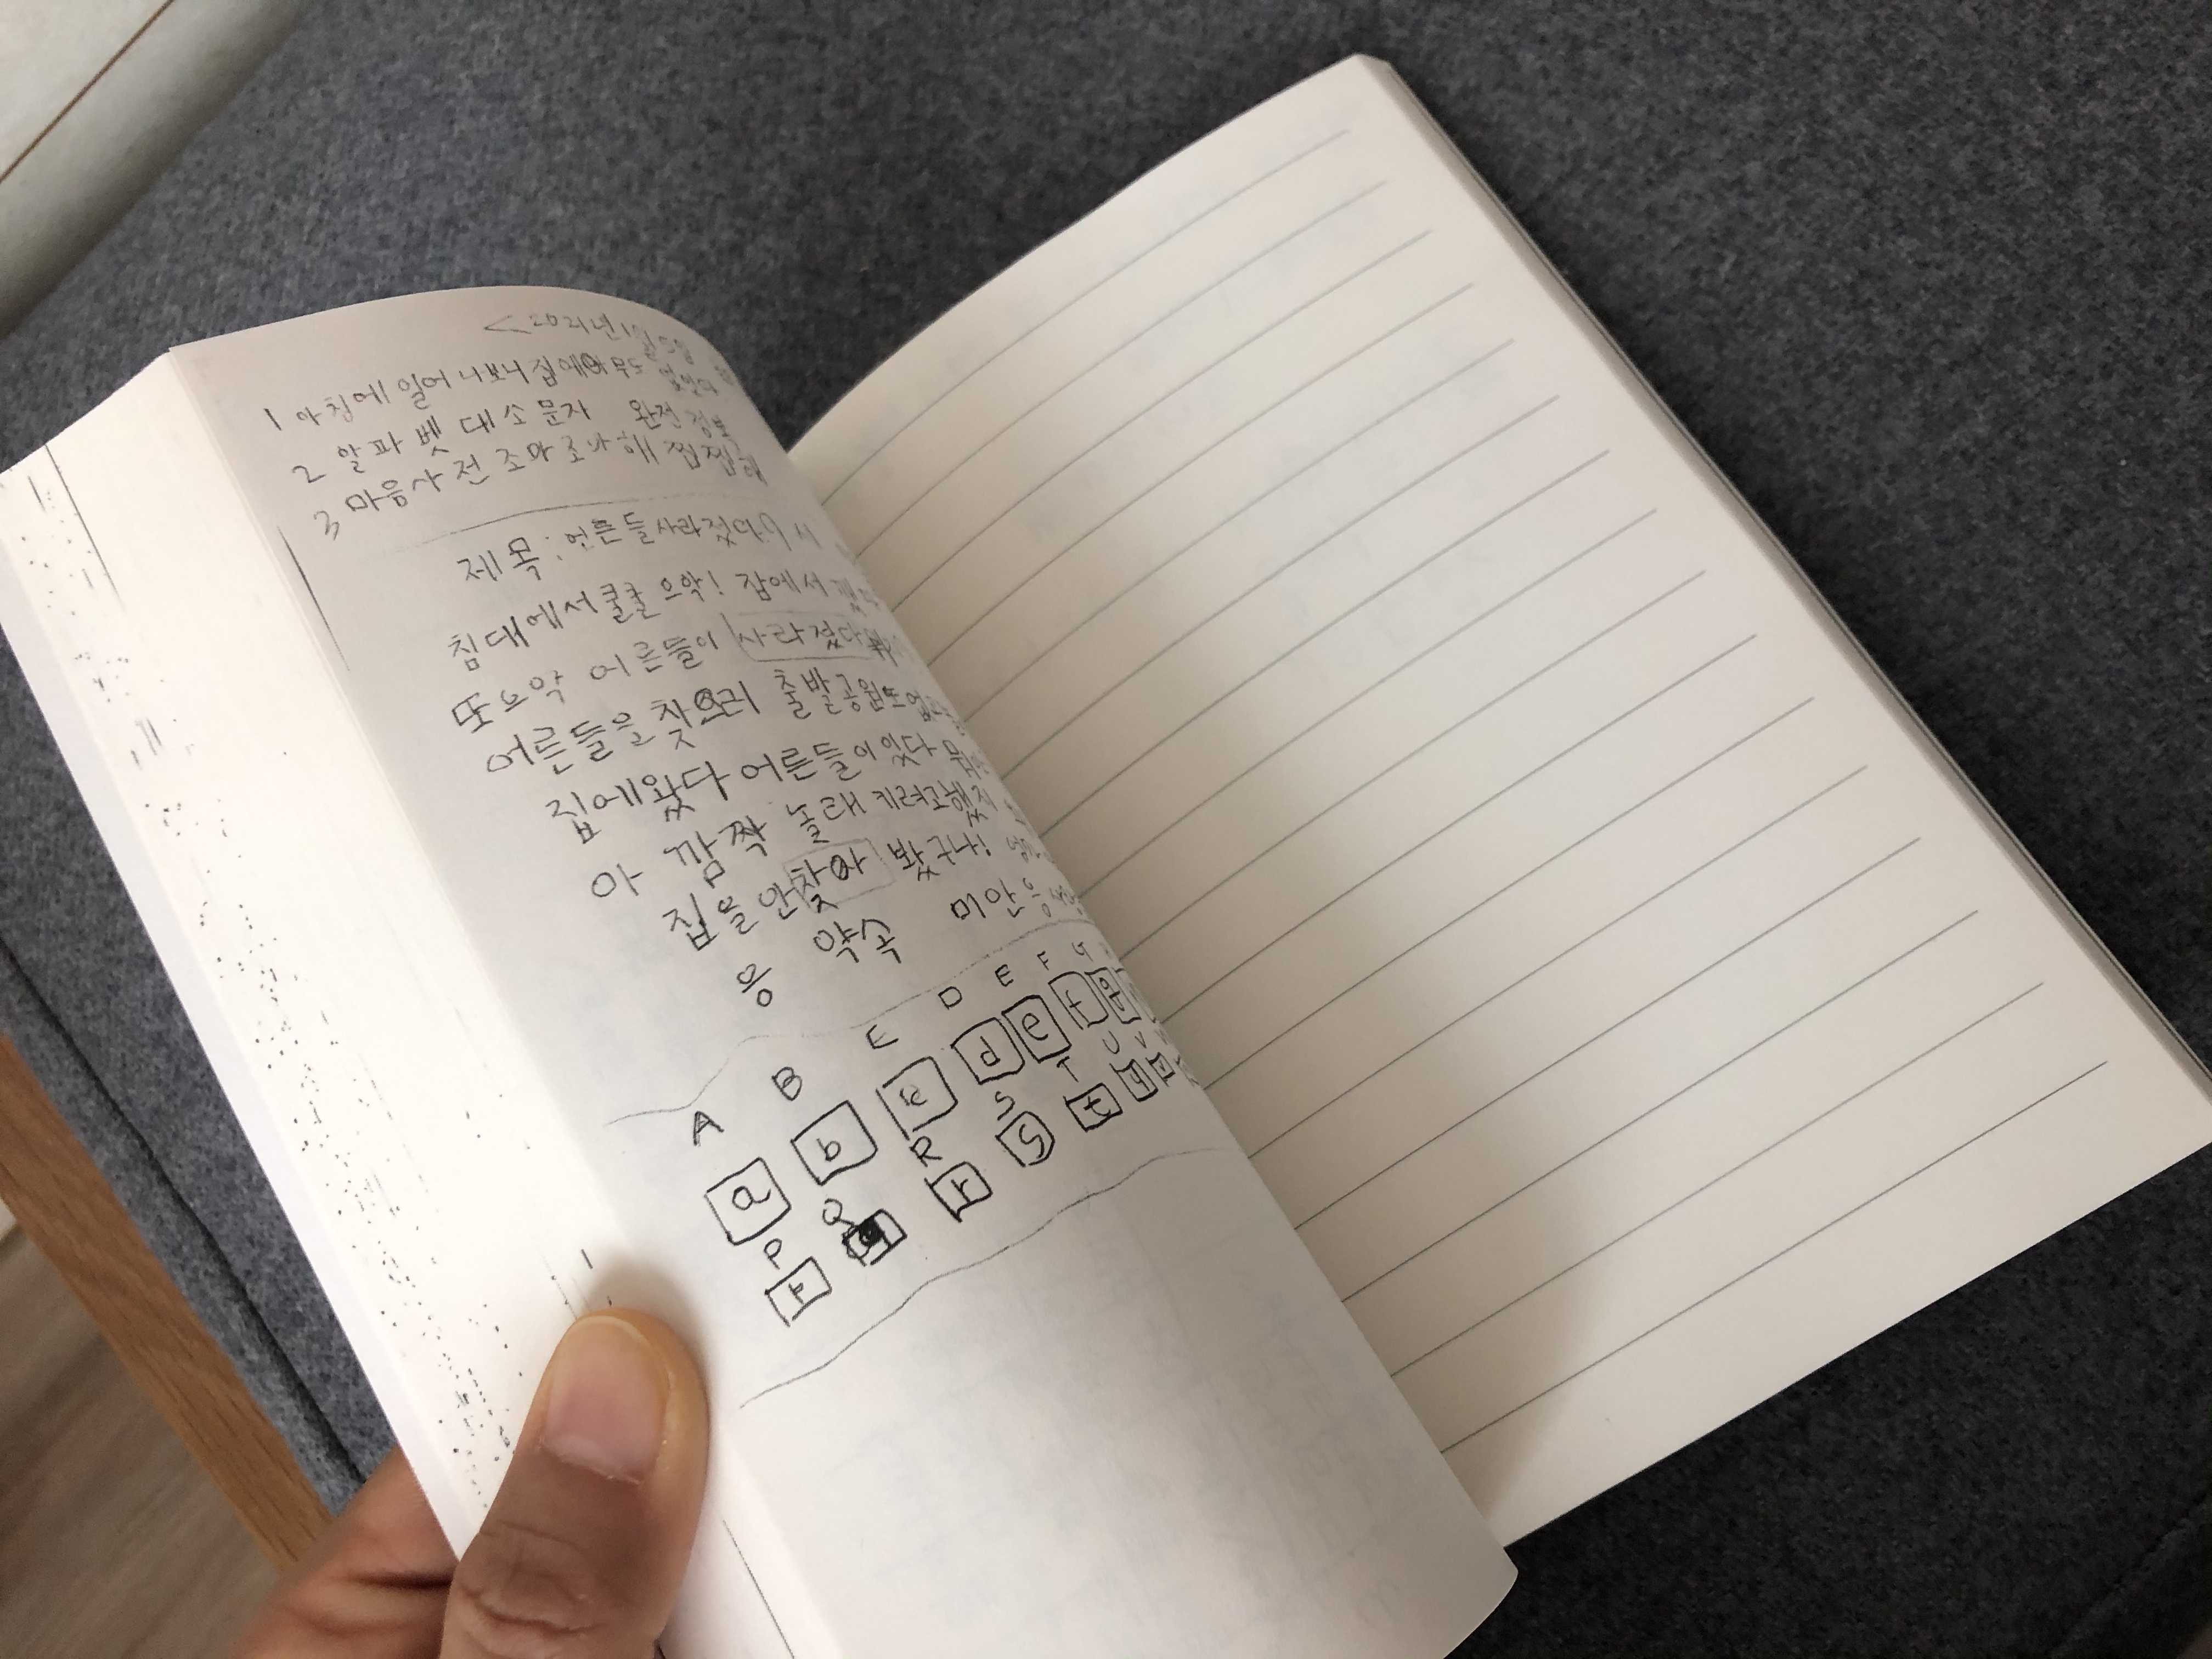 <2021년 1월
1 아침에 일어나보니 집에아무도 없었다
2 알파벳 대소문자 완전정복
3 마음사전 조마조마해 찝찝해
제목: 어른들사라졌다
침대에서쿨쿨 으악! 집에서
또으악 어른들이 사라졌다
어른들을 찾으러 출발공원또없
집에왔다 어른들이있다 뭐
아 깜짝 놀래키려고했지
집을안찾아 봤구나!
응 약속 미안 응
A B C D E F G
a b c d e f g
P Q R S T U V
P r s t u